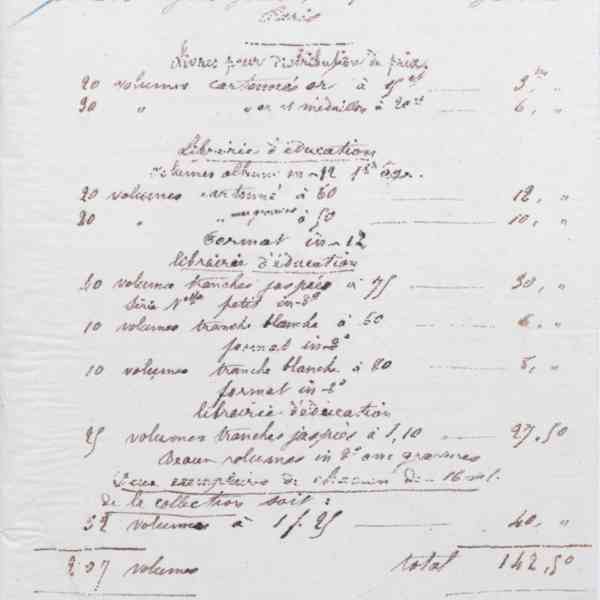 Paris
Livres pour distribution de prix.
20 volumes cartonnés or à 15 ct 3, "
30 " " or et médailles à 20 ct 6, "
Librairie d'éducation
volumes album in-12 1er âge.
20 volumes cartonné à 60 12, "
20 " " gravures à 50 10, "
Format in-12
librairie d'éducation
40 volumes tranches jaspées à 75 30, "
Série Nlle petit in-8°
10 volumes tranche blanche à 60 6, "
format in-8°
10 volumes tranche blanche à 80 8, "
format in-8°
librairie d'éducation
25 volumes tranches jaspées à 1,10 27,50
Beaux volumes in 8° avec gravures
Deux exemplaires de chacun des 16 vol.
de la collection soit :
32 volumes à 1 f. 25 40, "
207 volumes total 142,50